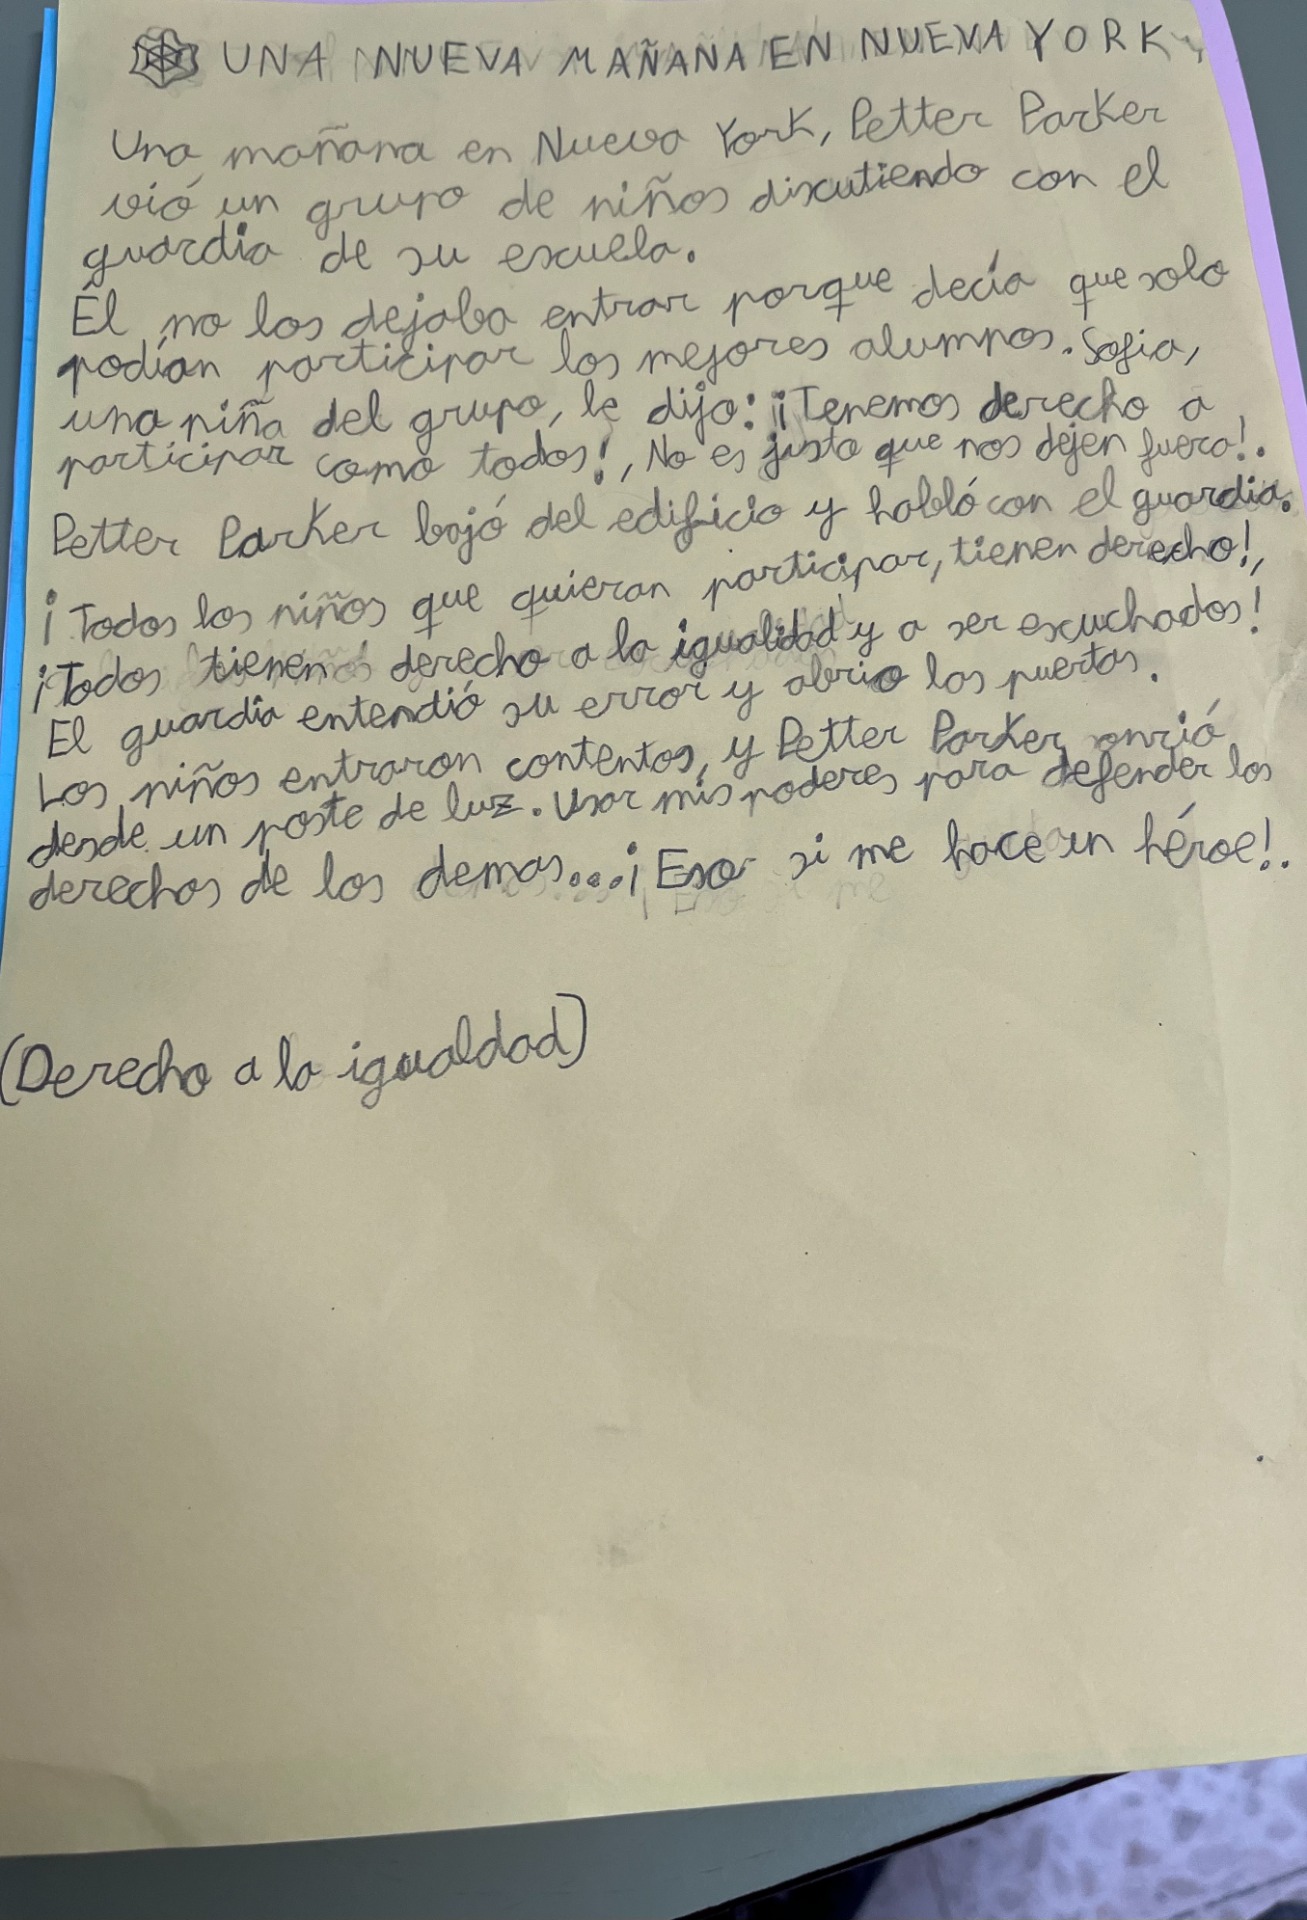 UNA NUEVA MAÑANA EN NUEVA YORK
Una mañana en Nueva York, Petter Parker
vió un grupo de niños discutiendo con el
guardia de su escuela.
Él no los dejaba entrar porque decía que solo
podían participar los mejores alumnos. Sofia,
una niña del grupo, le dijo: ¡Tenemos derecho a
participar como todos!, No es justo que nos dejen fuera!.
Petter Parker bajó del edificio y habló con el guardia.
¡Todos los niños que quieran participar, tienen derecho!,
¡Todos tienen derecho a la igualidad y a ser escuchados!
El guardia entendió su error y abrio las puertas.
Los niños entraron contentos, y Petter Parker onrió
desde un poste de luz. Usar mis poderes para defender los
derechos de los demas...¡Eso si me hace un héroe!.
(Derecho a la igualdad)